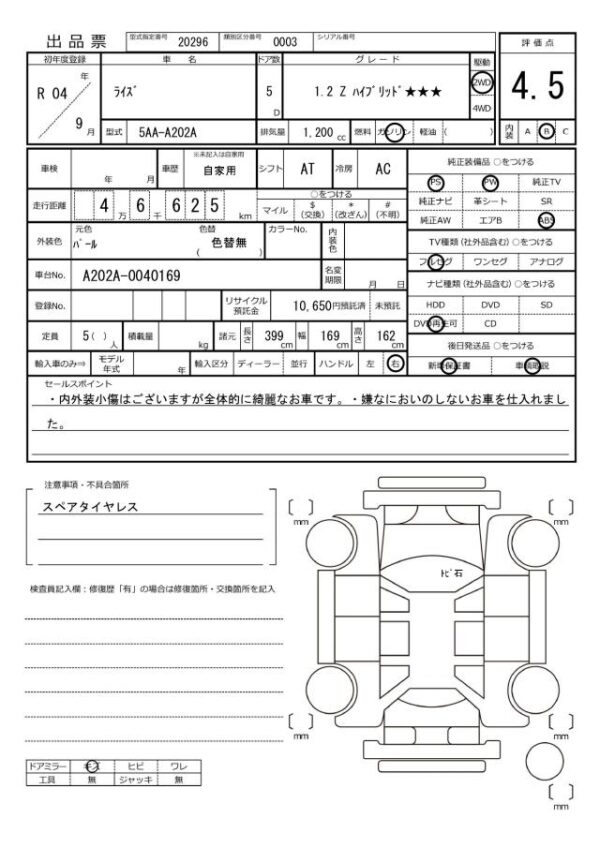 出品票 型式指定番号 20296 類別区分番号 0003 シリアル番号
評価点
4.5
内装 A B C
初年度登録 車名 ドア数 グレード 駆動
R 04 年 9 月 ライズ 5 D 1.2 Z ハイブリッド★★★ 2WD 4WD
型式 5AA-A202A 排気量 1,200 cc 燃料 ガソリン 軽油 ( )
車検 年 月 車歴 ※未記入は自家用 自家用 シフト AT 冷房 AC
走行距離 4 万 6 千 6 2 5 km ○をつける マイル $ (交換) * (改ざん) # (不明)
外装色 元色 パール 色替 色替無 ( ) カラーNo. 内装色
車台No. A202A-0040169 名変期限 月 日
登録No. リサイクル預託金 10,650円預託済 未預託
定員 5( ) 人 積載量 kg 諸元 長さ 399 cm 幅 169 cm 高さ 162 cm
輸入車のみ⇒ モデル年式 年 輸入区分 ディーラー 並行 ハンドル 左 右
純正装備品 ○をつける
PS PW 純正TV
純正ナビ 革シート SR
純正AW エアB ABS
TV種類 (社外品含む) ○をつける
フルセグ ワンセグ アナログ
ナビ種類 (社外品含む) ○をつける
HDD DVD SD
DVD再生可 CD
後日発送品 ○をつける
新車保証書 車輌取説
セールスポイント
・内外装小傷はございますが全体的に綺麗なお車です。・嫌なにおいのしないお車を仕入れまし
た。
注意事項・不具合箇所
スペアタイヤレス
検査員記入欄：修復歴「有」の場合は修復箇所・交換箇所を記入
ドアミラー キズ ヒビ ワレ
工具 無 ジャッキ 無
[ ] mm
[ ] mm
トビ石
[ ] mm
[ ] mm
[ ] mm